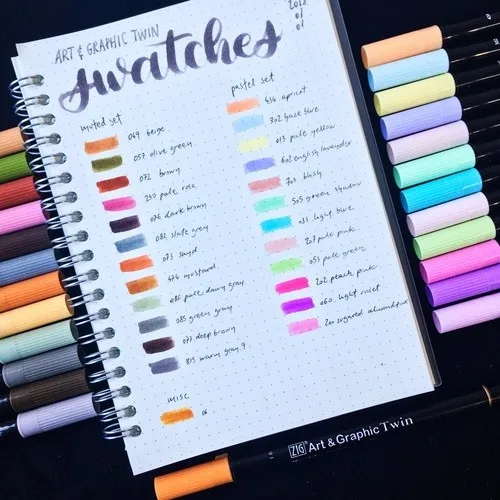 ART & GRAPHIC TWIN
2018
01
01
swatches
muted set
069 beige
057 olive green
072 brown
230 pale rose
076 dark brown
082 slate grey
073 sand
474 mustard
086 pale dawn gray
085 green gray
077 deep brown
815 warm gray 9
misc
06
pastel set
436 apricot
302 haze blue
013 pale yellow
602 english lavender
703 blush
505 green shadow
031 light blue
227 pale pink
053 pale green
202 peach pink
060 light violet
200 sugared almond pink
ZIG Art & Graphic Twin